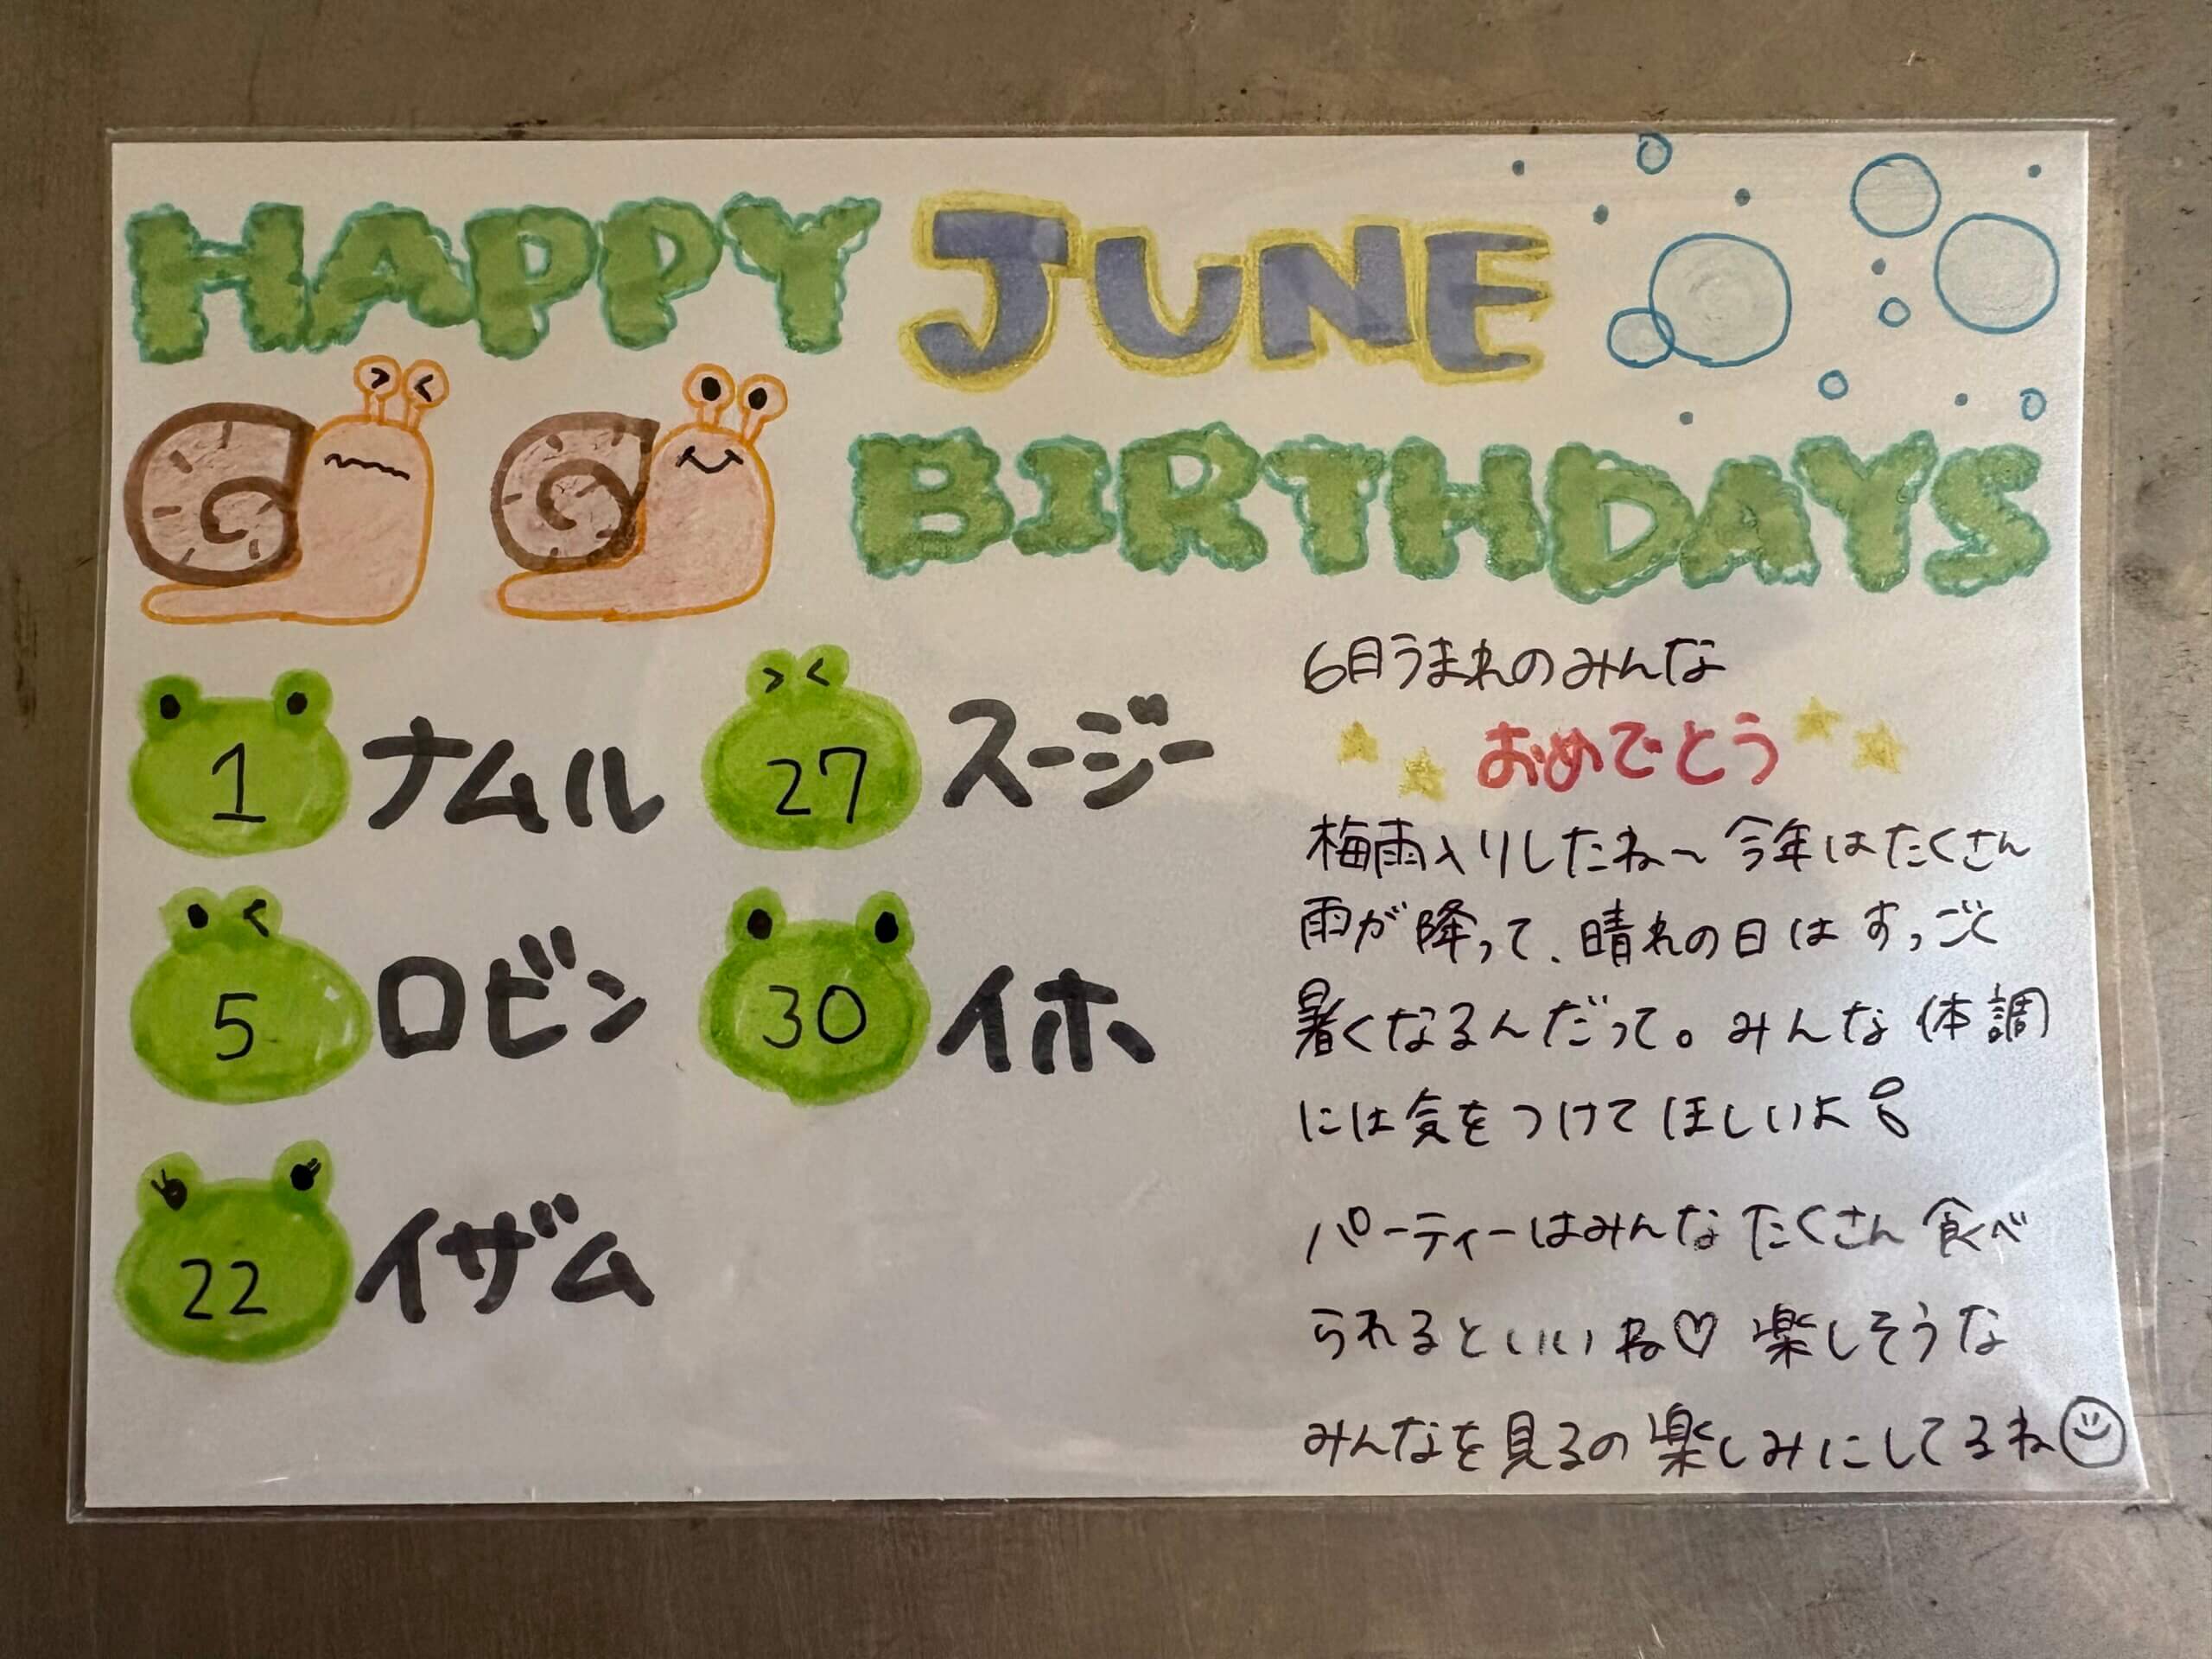 HAPPY JUNE
BIRTHDAYS
1 ナムル
27 スージー
5 ロビン
30 イホ
22 イザム
6月うまれのみんな
おめでとう
梅雨入りしたね〜今年はたくさん
雨が降って、晴れの日はすっごく
暑くなるんだって。みんな体調
には気をつけてほしいよ
パーティーはみんなたくさん食べ
られるといいね♡ 楽しそうな
みんなを見るの楽しみにしてるね